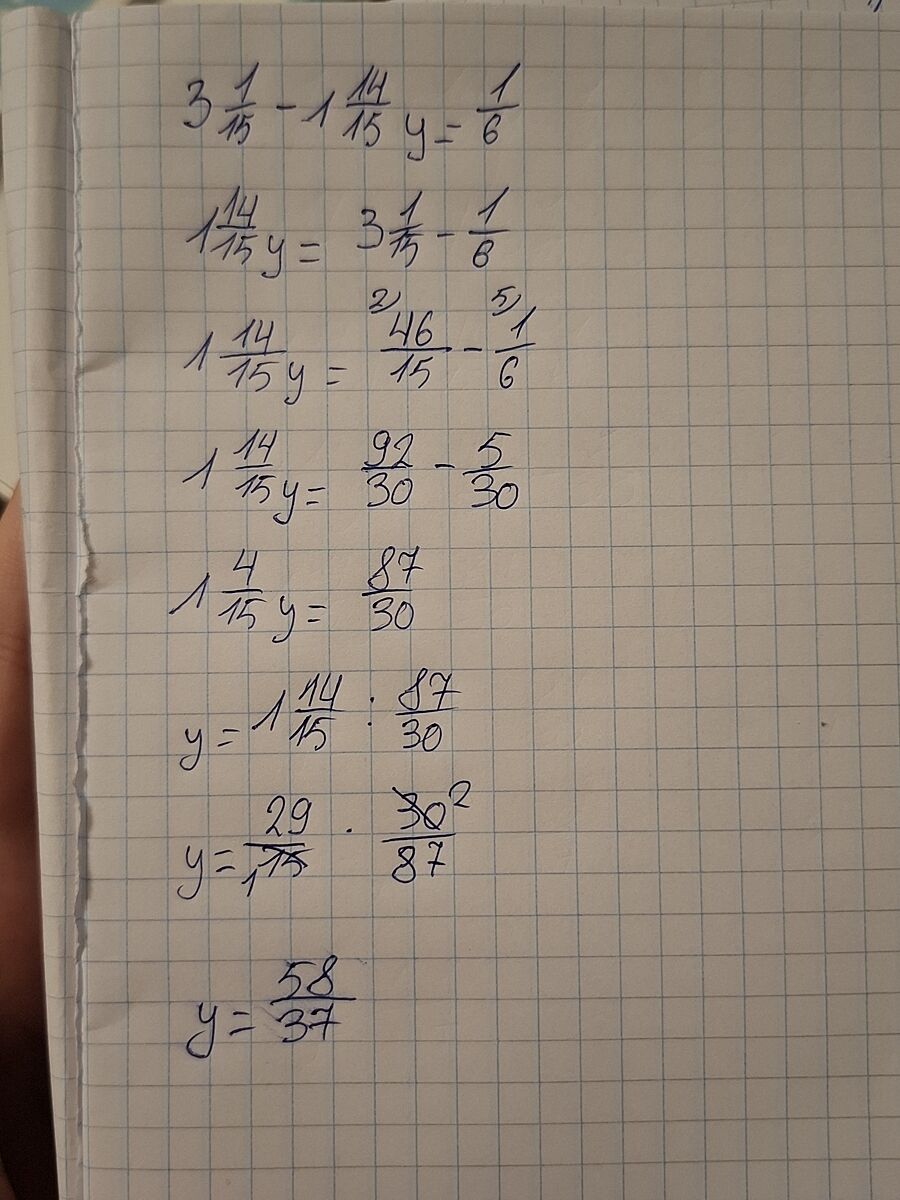 3 1/15 - 1 14/15 y = 1/6
1 14/15 y = 3 1/15 - 1/6
1 14/15 y = 2) 46/15 - 5) 1/6
1 14/15 y = 92/30 - 5/30
1 4/15 y = 87/30
y = 1 14/15 : 87/30
y = 29/15 1 · 30 2/87
y = 58/37